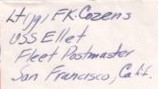 Lt(jg) F.K. Cozens
USS Ellet
Fleet Postmaster
San Francisco, Calif.